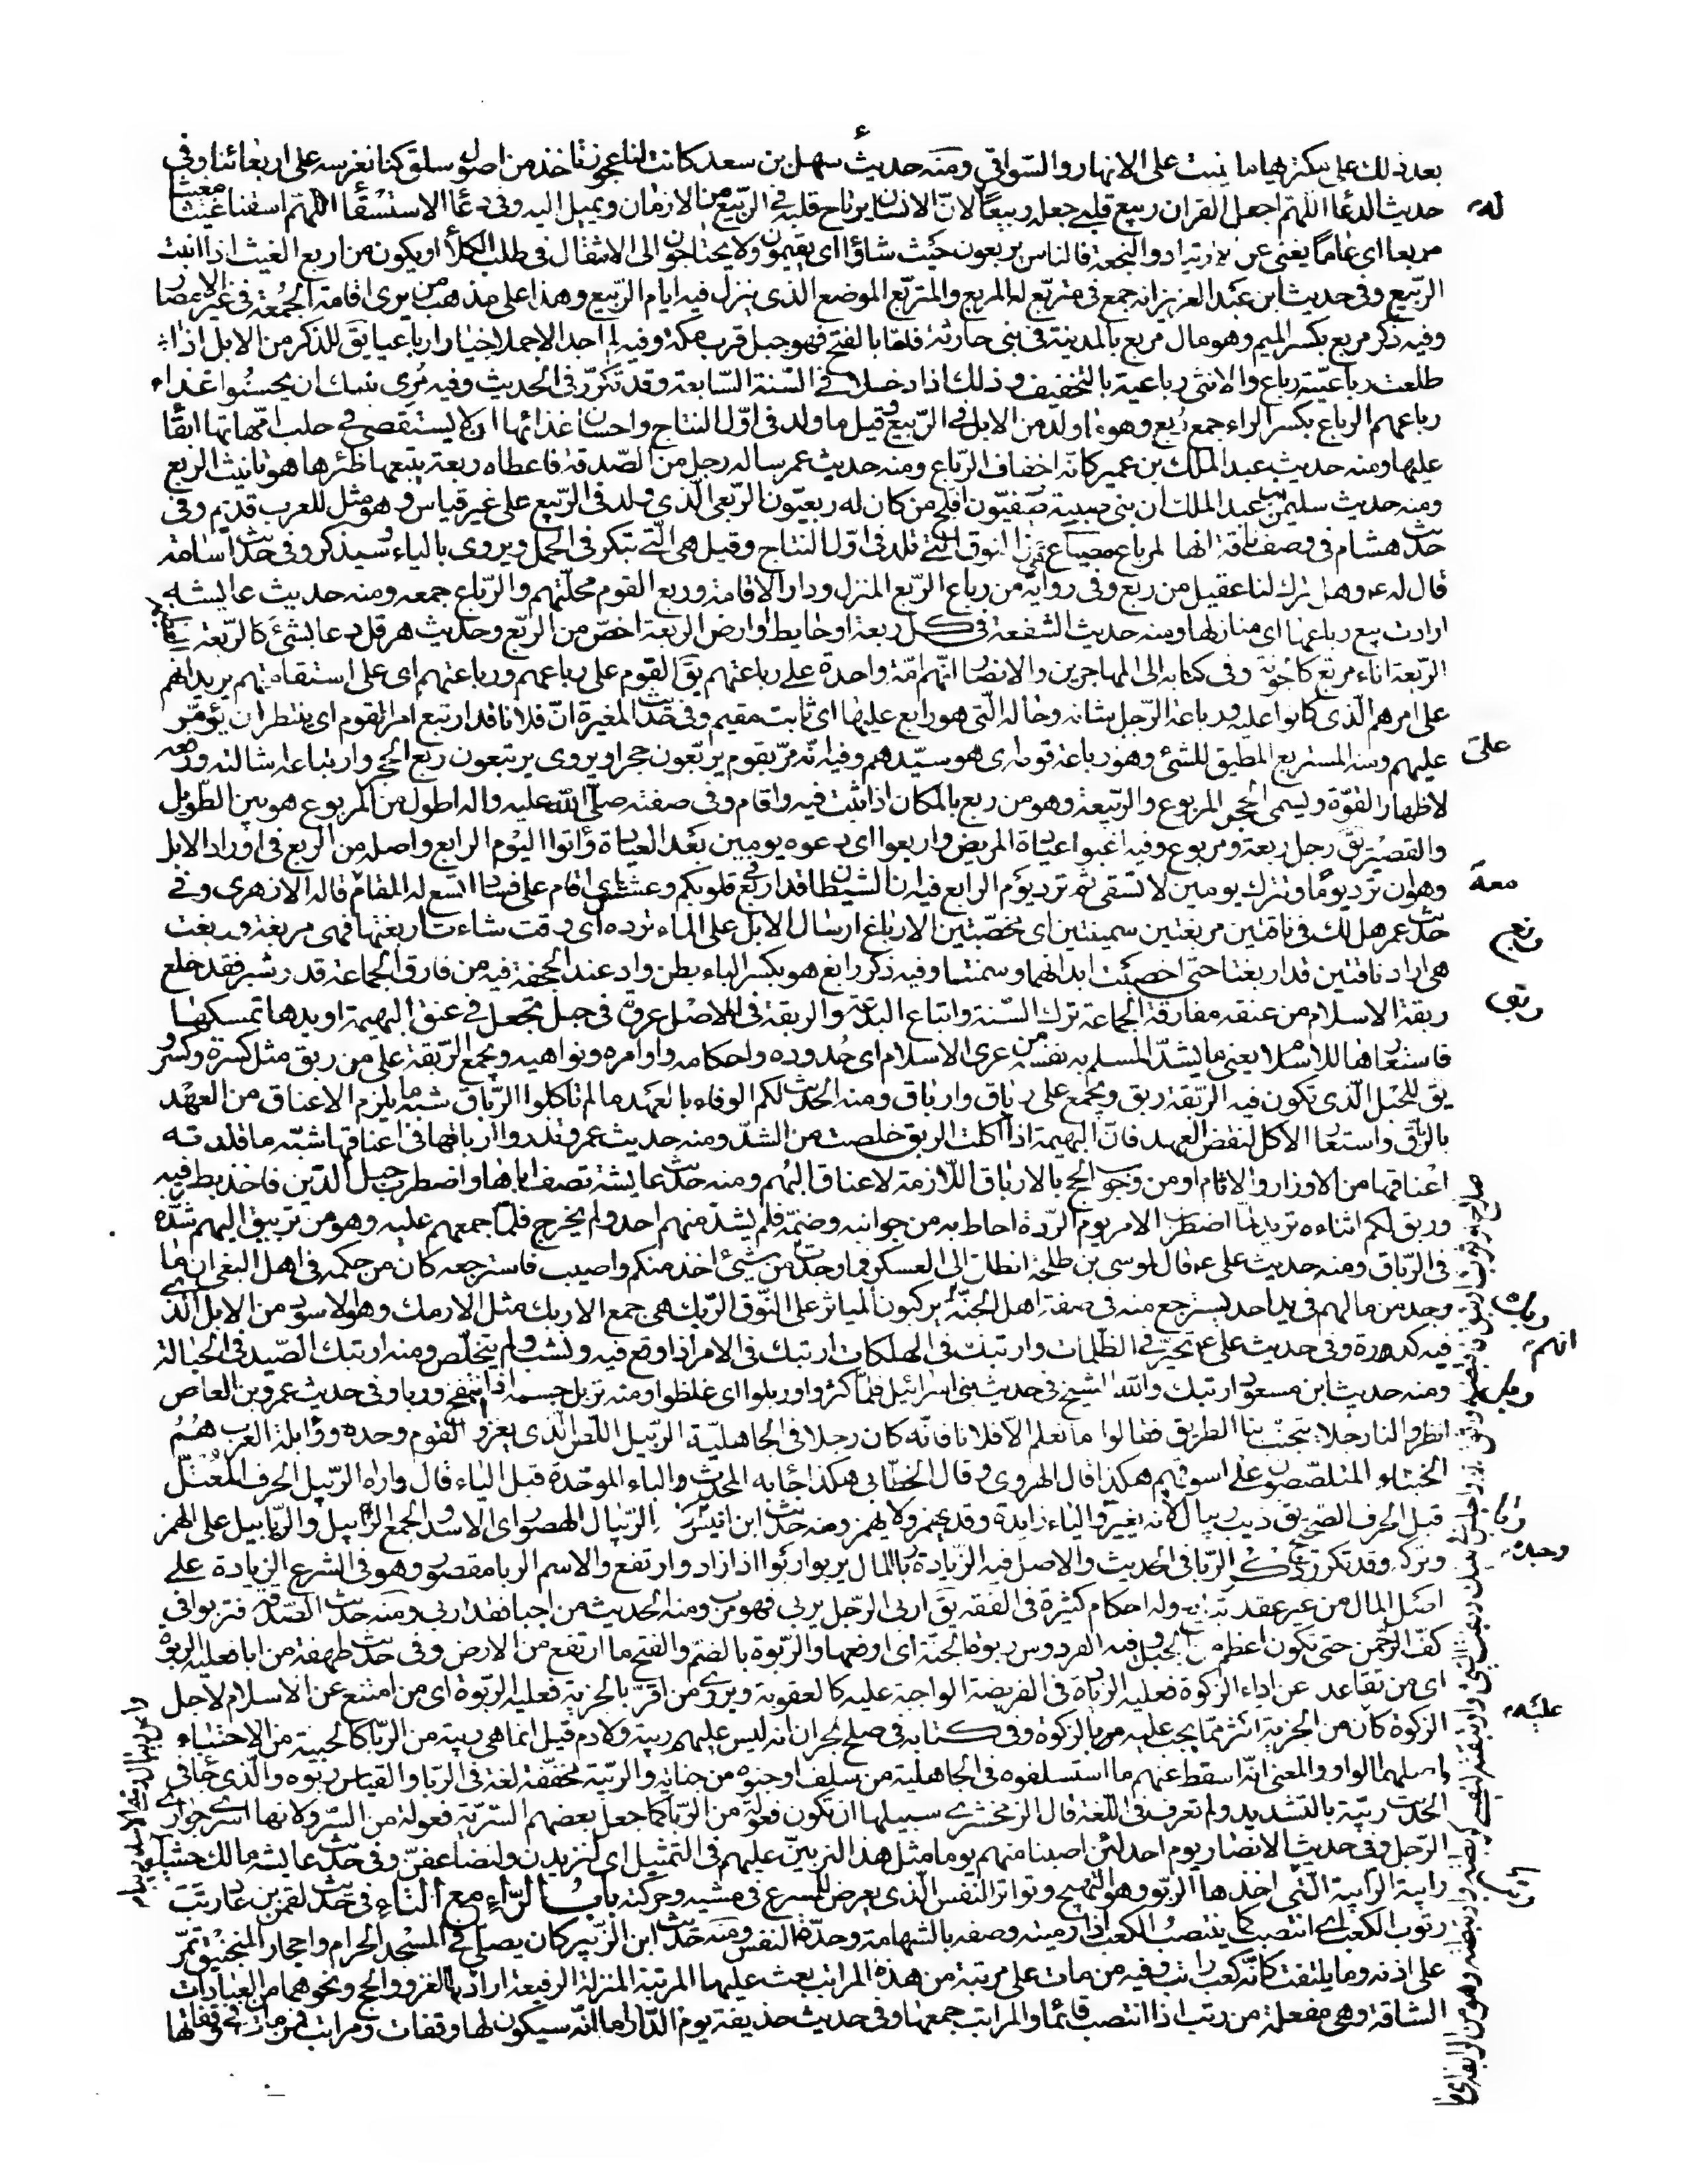 بعد ذلك على يكتريها بما ينبت على الانهار والسّواقي ومنه حديث سهل بن سعد كانت لنا عجوز تاخذ من اصول سلق كنا نغرسه على اربعائنا وفى
حديث الدعا اللهمّ اجعل القران ربيع قلبى جعله ربيعًا لانّ الانسان يرتاح قلبه فى الربيع من الازمان ويميل اليه وفى دعا الاستسقا اللهمّ اسقنا غيثا مغيثا
مربعا اى عاما يغنى عن الارتياد والنجعة فالناس يربعون حيث شاؤا اى يقيمون ولا يحتاجون الى الانتقال فى طلب الكلأ او يكون من اربع الغيث اذا انبت
الربيع وفى حديث ابن عبد العزيز انه جمع فى متربّع له المربع والمتربّع الموضع الذى ينزل فيه ايام الربيع وهذا على مذهب من يرى اقامة الجمعة فى غير الامصار
وفيه ذكر مربع بكسر الميم وهو مال مربع بالمدينة فى بنى حارثة فامّا بالفتح فهو جبل قرب مكة وفيه لم اجد الا جملا خيارا رباعيا يق للذكر من الابل اذا
طلعت رباعيّته رباع والانثى رباعية بالتخفيف وذلك اذا دخلا فى السّنة السّابعة وقد تكرّر فى الحديث وفيه مرى بنيك ان يحسنوا غذاء
رباعهم الرباع بكسر الراء جمع ربع وهو ما ولد من الابل فى الربيع وقيل ما ولد فى اوّل النتاج واحسان غذائها ان لا يستقصى فى حلب امّهاتها ابقاء
عليها ومنه حديث عبد الملك بن عمير كانّه اخفاف الرباع ومنه حديث عمر ساله رجل من الصّدقة فاعطاه ربعة يتبعها ظئرها هو تانيث الربع
ومنه حديث سليمن بن عبد الملك ان بنى صبية صيفيّون افلح من كان له ربعيّون الربعى الّذى ولد فى الربيع على غير قياس وهو مثل للعرب قديم وفى
حديث هشام فى وصف ناقة انها لمرباع مسياع هى من النوق التى تلد فى اوّل النتاج وقيل هى التى تبكر فى الحمل ويروى بالياء وسيذكر وفى حديث اسامة
قال له ع وهل ترك لنا عقيل من ربع وفى رواية من رباع الربع المنزل ودار الاقامة وربع القوم محلّتهم والرباع جمعه ومنه حديث عايشه
ارادت بيع رباعها اى منازلها ومنه حديث الشفعة فى كل ربعة او حايط او ارض الربعة اخصّ من الربع وحديث هرقل دعا بشئ كالربعة
الربعة اناء مربع كالجونة وفى كتابه الى المهاجرين والانصار انّهم امّة واحدة على رباعتهم يق القوم على رباعهم ورباعتهم اى على استقامتهم يريد انهم
على امرهم الّذى كانوا عليه ورباعة الرّجل شانه وحاله الّتى هو رابع عليها اى ثابت مقيم وفى حديث المغيرة انّ فلانا قد ارتبع امر القوم اى ينتظر ان يؤمّر
عليهم ومنه المستربع المطيق للشئ وهو رباعة قومه اى هو سيّدهم وفيه انّه مرّ بقوم يربعون حجرا ويروى يرتبعون ربع الحجر وارتباعه اشالته ورفعه
لاظهار القوّة ويسمى الحجر المربوع والربيعة وهو من ربع بالمكان اذا ثبت فيه واقام وفى صفته صلّى الله عليه واله اطول من المربوع هو بين الطويل
والقصير يق رجل ربعة ومربوع وفيه اغبوا عيادة المريض واربعوا اى دعوه يومين بعد العيادة وأتوا اليوم الرابع واصله من الربع فى اوراد الابل
وهو ان ترد يومًا وتترك يومين لا تسقى ثم ترد يوم الرابع فيه ان الشيطان قد اربغ فى قلوبكم وعشش اى اقام على فساد اتّسع له المقام قاله الازهرى وفى
حديث عمر هل لك فى ناقتين مربغتين سمينتين اى مخصبتين الارباغ ارسال الابل على الماء ترده اى وقت شاءت اربغتها فهى مربغة وربغت
هى اراد ناقتين قد اربغتا حتى اخصبت ابدانهما وسمنتا وفيه ذكر رابغ هو بكسر الباء بطن واد عند الجحفة فيه من فارق الجماعة قدر شبر فقد خلع
ربقة الاسلام من عنقه مفارقة الجماعة ترك السّنة واتباع البدعة والربقة فى الاصل عروة فى حبل تجعل فى عنق البهيمة او يدها تمسكها
فاستعارها للاسلام يعنى ما يشدّ المسلم به نفسه من عرى الاسلام اى حدوده واحكامه واوامره ونواهيه وتجمع الرّبقة على ربق مثل كسرة وكسر
يق للحبل الّذى تكون فيه الرّبقة ربق ويجمع على رباق وارباق ومنه الحديث لكم الوفاء بالعهد ما لم تاكلوا الرّباق شبه ما يلزم الاعناق من العهد
بالرباق واستعار الاكل لنقض العهد فانّ البهيمة اذا اكلت الربق خلصت من الشدّ ومنه حديث عمر وتذروا ارباقها فى اعناقها شبّه ما قلدته
اعناقها من الاوزار والاثام او من وجوب الحج بالارباق اللازمة لاعناق البهم ومنه حديث عايشة تصف اباها واضطرب حبل الدّين فاخذ بطرفيه
وربق لكم اثناءه تريد لمّا اضطرب الامر يوم الرّدة احاط به من جوانبه وضمّه فلم يشذّ منهم احد ولم يخرج عمّا جمعهم عليه وهو من تربيق البهم شدّه
فى الرّباق ومنه حديث على ع قال لموسى بن طلحة انطلق الى العسكر فما وجدت من شئ اخذ منكم واصيب فاسترجعه كان من حكمه فى اهل البغى ان ما
وجد من مالهم فى يد احد يسترجع منه فى صفة اهل الجنّة يركبون المياثر على النّوق الرّبك هى جمع الاربك مثل الارمك وهو الاسود من الابل الّذى
فيه كدورة وفى حديث على ع تحيّر فى الظلمات وارتبك فى الهلكات ارتبك فى الامر اذا وقع فيه ونشب ولم يتخلّص ومنه ارتبك الصّيد فى الحبالة
ومنه حديث ابن مسعود ارتبك والله الشيخ فى حديث بنى اسرائيل فلمّا كثروا وربلوا اى غلظوا ومنه تربل جسمه اذا انتفخ وربا وفى حديث عمرو بن العاص
انظروا لنا رجلا يتجنّب بنا الطريق فقالوا ما نعلم الّا فلانا فانّه كان رجلا فى الجاهليّة الربّيل اللّص الّذى يغزو القوم وحده وورابلة العرب هم
الخبثاء المتلصّصون على اسوقهم هكذا قال الهروى وقال الخطّابى هكذا جابه المحدث والباء الموحّدة قبل الياء قال واراه الرّيبل الحرف المعتلّ
قبل الحرف الصّحيح يق ذئب ريبال لانّه يغير والياء زايدة وقد يهمز ولا يهمز ومنه حديث ابن انيس الرّيبال الهصور اى الاسد والجمع الرّابيل والرّيابيل على الهمز
وتركه وقد تكرّر ذكر الرّبا فى الحديث والاصل فيه الزّيادة ربا المال يربو اربوا اذا زاد وارتفع والاسم الربا مقصور وهو فى الشرع الزيادة على
اصل المال من غير عقد تبايع وله احكام كثيرة فى الفقه يق اربى الرّجل يربى فهو مرب ومنه الحديث من اجبا فقد اربى ومنه حديث الصّدقة فتربوا فى
كفّ الرحمن حتى تكون اعظم من الجبل وفيه الفردوس ربوة الجنّة اى ارفعها والرّبوة بالضمّ والفتح ما ارتفع من الارض وفى حديث طهفة من ابا فعليه الربوة
اى من تقاعد عن اداء الزكوة فعليه الزيادة فى الفريضة الواجبة عليه كالعقوبة ويروى من اقرّ بالجزية فعليه الربوة اى من امتنع عن الاسلام لاجل
الزكوة كان من الجزية اكثر ممّا يجب عليه بالزكوة وفى كتابه فى صلح نجران انه ليس عليهم ربية ولا دم قيل انما هى ربية من الرّبا كالحبية من الاحتباء
واصلهما الواو والمعنى انّه اسقط عنهم ما استسلفوه فى الجاهليّة من سلف او جنوه من جناية والربية مخففة لغة فى الرّبا والقياس ربوه والّذى جا فى
الحديث ربّيّة بالتشديد ولم تعرف فى اللّغة قال الزمخشرى سبيلها ان تكون فعولة من الرّبا كما جعل بعضهم السرّية فعولة من السّرو لانها اسرى جوارى
الرّجل وفى حديث الانصار يوم احد لئن اصبنا منهم يوما مثل هذا لنربينّ عليهم فى التمثيل اى لنزيدن ولنضاعفنّ وفى حديث عايشه مالك حشيا
رابية الرابية الّتى اخذها الربو وهو النّهيج وتواتر النفس الّذى يعرض للمسرع فى مشيه وحركته باب الرّاء مع التاء فى حديث لقمن بن عاد رتب
رتوب الكعب اى انتصب كما ينتصب الكعب اذا رميته وصفه بالشهامة وحدّة النفس ومنه حديث ابن الزّبير كان يصلى فى المسجد الحرام واحجار المنجنيق تمرّ
على اذنه وما يلتفت كانّه كعب راتب وفيه من مات على مرتبة من هذه المراتب بعث عليها المرتبة المنزلة الرفيعة اراد بها الغزو والحج ونحوهما من العبادات
الشاقة وهى مفعلة من رتب اذا انتصب قائما والمراتب جمعها وفى حديث حذيفة يوم الدّار اما انّه سيكون لها وقفات ومراتب فمن مات فى وقفاتها
له
على
معه
ربغ
ربق
ربك
انهم
ربل
ربا
وحده
عليه
رتب